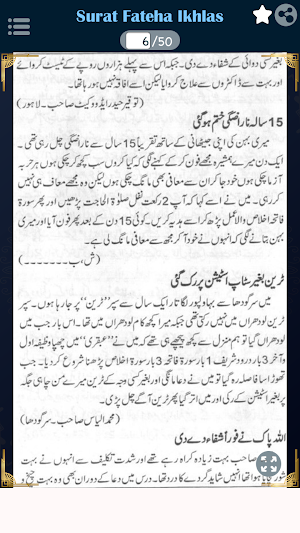 Surat Fateha Ikhlas
6 /50
بغیر کسی دوائی کے شفاء دے دی۔ جبکہ اس سے پہلے ہزاروں روپے کے ٹیسٹ کروائے
اور بہت سے ڈاکٹروں سے علاج کروایا لیکن اسے افاقہ نہیں ہو رہا تھا۔
(توقیر حیدر ایڈووکیٹ صاحب۔ لاہور)
15 سالہ ناراضگی ختم ہو گئی
میری بہن کی اپنی جیٹھانی کے ساتھ تقریباً 15 سال سے ناراضگی چل رہی تھی۔
ایک دن میرے ہمشیرہ مجھے فون کر کے کہنے لگی کہ کیا کروں سب کچھ کر چکی ہوں ہر حربہ
آزما چکی ہوں خود جا کر ان سے معافی بھی مانگ چکی ہوں لیکن وہ مجھے معاف ہی نہیں
کر رہی۔ میں نے اسے کہا کہ آپ 2 رکعت نفل صلوٰۃ الحاجت پڑھیں اور پھر سورۃ
فاتحہ اخلاص والا عمل پڑھ کر اسے ہدیہ کریں۔ کوئی 15 دن کے بعد پھر فون آیا اور میری
بہن بتانے لگی کہ انہوں نے خود آ کر مجھ سے معافی مانگ لی ہے۔
(ش، ب)
ٹرین بغیر سٹاپ اسٹیشن پر رک گئی
میں سرگودھا سے بہاولپور لگاتار ایک سال سے سپر "ٹرین" پر جا رہا ہوں۔ سپر
ٹرین لودھراں میں نہیں رکتی تھی جبکہ میرا کچھ کام لودھراں میں تھا۔ اس بار جب میں
گھر میں گیا تو ہم منزل سے کچھ پیچھے ہی تھے کہ میں نے "عبقری" میں چھپا وظیفہ اول
و آخر 3 بار درود شریف 1 بار سورۃ فاتحہ 3 بار سورۃ اخلاص پڑھنا شروع کر دیا۔ جب
تھوڑا سا فاصلہ رہ گیا تو میں نے دعا مانگی اور بغیر کسی وجہ کے ٹرین میرے من چاہی جگہ
پر بغیر اسٹیشن کے رکی اور میں اتر گیا پھر ٹرین آگے چل پڑی۔
(محمد الیاس صاحب۔ سرگودھا)
اللہ پاک نے فوراً شفاء دے دی
بہت زیادہ کراہ رہے تھے اور شدت تکلیف سے انہوں نے بہت
شور ہوا تھا انہیں شاید گردے کا درد تھا۔ درس میں دعا کے دوران بھی وہ بہت چیخ و